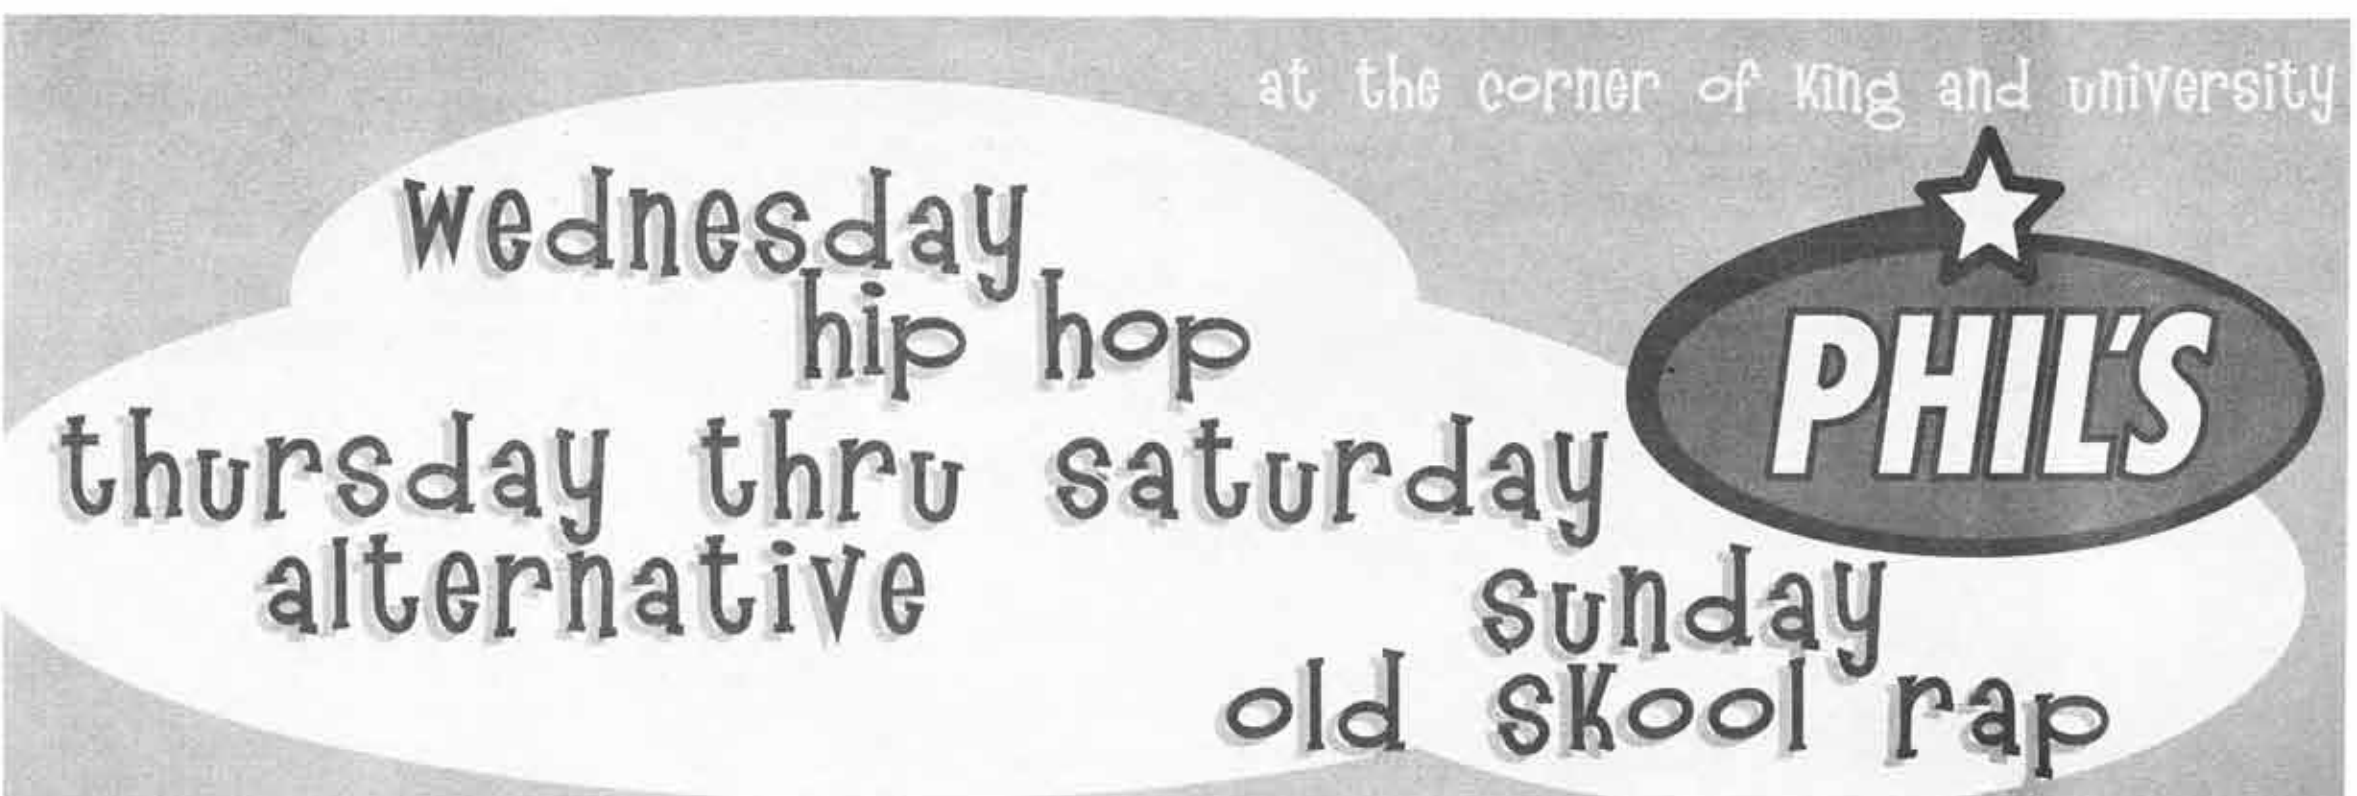 at the corner of King and university
PHIL'S
wednesday
hip hop
thursday thru saturday
alternative
sunday
old skool rap